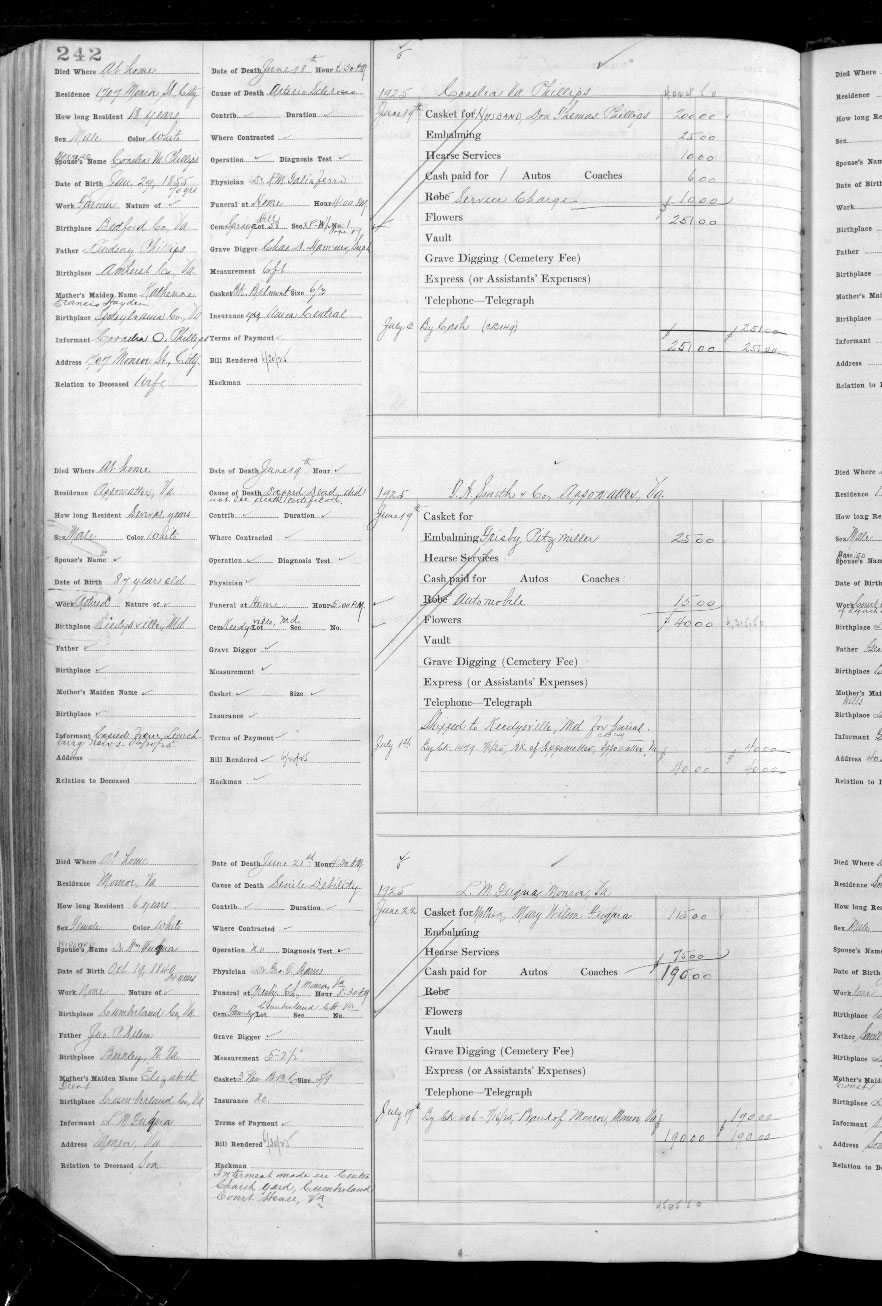 242
Died Where At home
Residence 1707 Monroe St. City
How long Resident 18 years
Sex Male Color White
Spouse's Name Cornelia M. Phillips
Date of Birth Jan. 29, 1855
70 yrs
Work Farmer Nature of ✓
Birthplace Bedford Co, Va
Father Phillips
Birthplace Amherst Co, Va.
Mother's Maiden Name Katherine
Francis Hayden
Birthplace Co, Va
Informant Cornelia O. Phillips
Address 1707 Monroe St, City
Relation to Deceased Wife
Date of Death June 18th Hour 2.30 PM
Cause of Death Arterio Sclerosis
Contrib. ✓ Duration ✓
Where Contracted ✓
Operation ✓ Diagnosis Test ✓
Physician Dr.
Funeral at Home Hour 4:00 PM
Cem. Spring Hill Lot 58 Sec. No. 1
Grave Digger Chas. D. Supt
Measurement 6ft
Casket Belmont Size 6/3
Insurance yes Union Central
Terms of Payment ✓
Bill Rendered 6/20/25
Hackman
1925 Cornelia M. Phillips
June 19th Casket for Husband, Don Thomas Phillips 200 00
Embalming 25 00
Hearse Services 10 00
Cash paid for 1 Autos Coaches 6 00
Robe Service Charge 10 00
Flowers $ 251 00
Vault
Grave Digging (Cemetery Fee)
Express (or Assistants' Expenses)
Telephone—Telegraph
July 2 By Cash $ $ 251 00
251 00 251 00
Died Where At home
Residence Appomattox, Va.
How long Resident Several years
Sex Male Color White
Spouse's Name ✓
Date of Birth 87 years old
Work Retired Nature of ✓
Birthplace Keedysville, Md
Father ✓
Birthplace ✓
Mother's Maiden Name ✓
Birthplace ✓
Informant Copied from Lynch-
burg News - 6/20/25
Address
Relation to Deceased
Date of Death June 19th Hour ✓
Cause of Death Dropped Dead, did
not see death certificate
Contrib. ✓ Duration ✓
Where Contracted ✓
Operation ✓ Diagnosis Test ✓
Physician ✓
Funeral at Home Hour 5:00 PM
Cem. Keedysville, Md Lot Sec. No.
Grave Digger ✓
Measurement ✓
Casket ✓ Size ✓
Insurance ✓
Terms of Payment ✓
Bill Rendered ✓ 6/20/25
Hackman ✓
1925 D. A. Smith & Co, Appomattox, Va.
June 19th Casket for
Embalming Grisby Petz Miller 25 00
Hearse Services
Cash paid for Autos Coaches
Robe Automobile 15 00
Flowers $ 40 00
Vault
Grave Digging (Cemetery Fee)
Express (or Assistants' Expenses)
Telephone—Telegraph
Shipped to Keedysville, Md for burial.
July 1st By Ck. Bk. of Appomattox, Appomattox Va $ $ 40 00
40 00 40 00
Died Where At home
Residence Monroe, Va
How long Resident 6 years
Sex Female Color White
Spouse's Name
Date of Birth Oct 19, 1840
84 years
Work None Nature of ✓
Birthplace Cumberland Co, Va
Father Jno. P. Wilson
Birthplace
Mother's Maiden Name Elizabeth
Trent
Birthplace Cumberland Co, Va
Informant L. M.
Address Monroe, Va
Relation to Deceased Son
Date of Death June 21st Hour 4.30 PM
Cause of Death Senile Debility
Contrib. ✓ Duration ✓
Where Contracted ✓
Operation No Diagnosis Test ✓
Physician Dr. Geo. V. Harris
Funeral at Presby. Ch. Monroe, Va Hour 3:30 PM
Cem. Family Lot Cumberland C.H. Va Sec. No.
Grave Digger ✓
Measurement 5-2/2
Casket Size 5/9
Insurance no
Terms of Payment ✓
Bill Rendered 6/30/25
Hackman
Interment made in Center
Church yard, Cumberland
Court House, Va
1925 L. M. Monroe, Va
June 22 Casket for Mother, Mary Wilson 115 00
Embalming
Hearse Services $ 75 00
Cash paid for Autos Coaches $ 190 00
Robe
Flowers
Vault
Grave Digging (Cemetery Fee)
Express (or Assistants' Expenses)
Telephone—Telegraph
July 17th By Ck. 406 - 7/16/25, Bank of Monroe, Monroe, Va $ $ 190 00
190 00 190 00